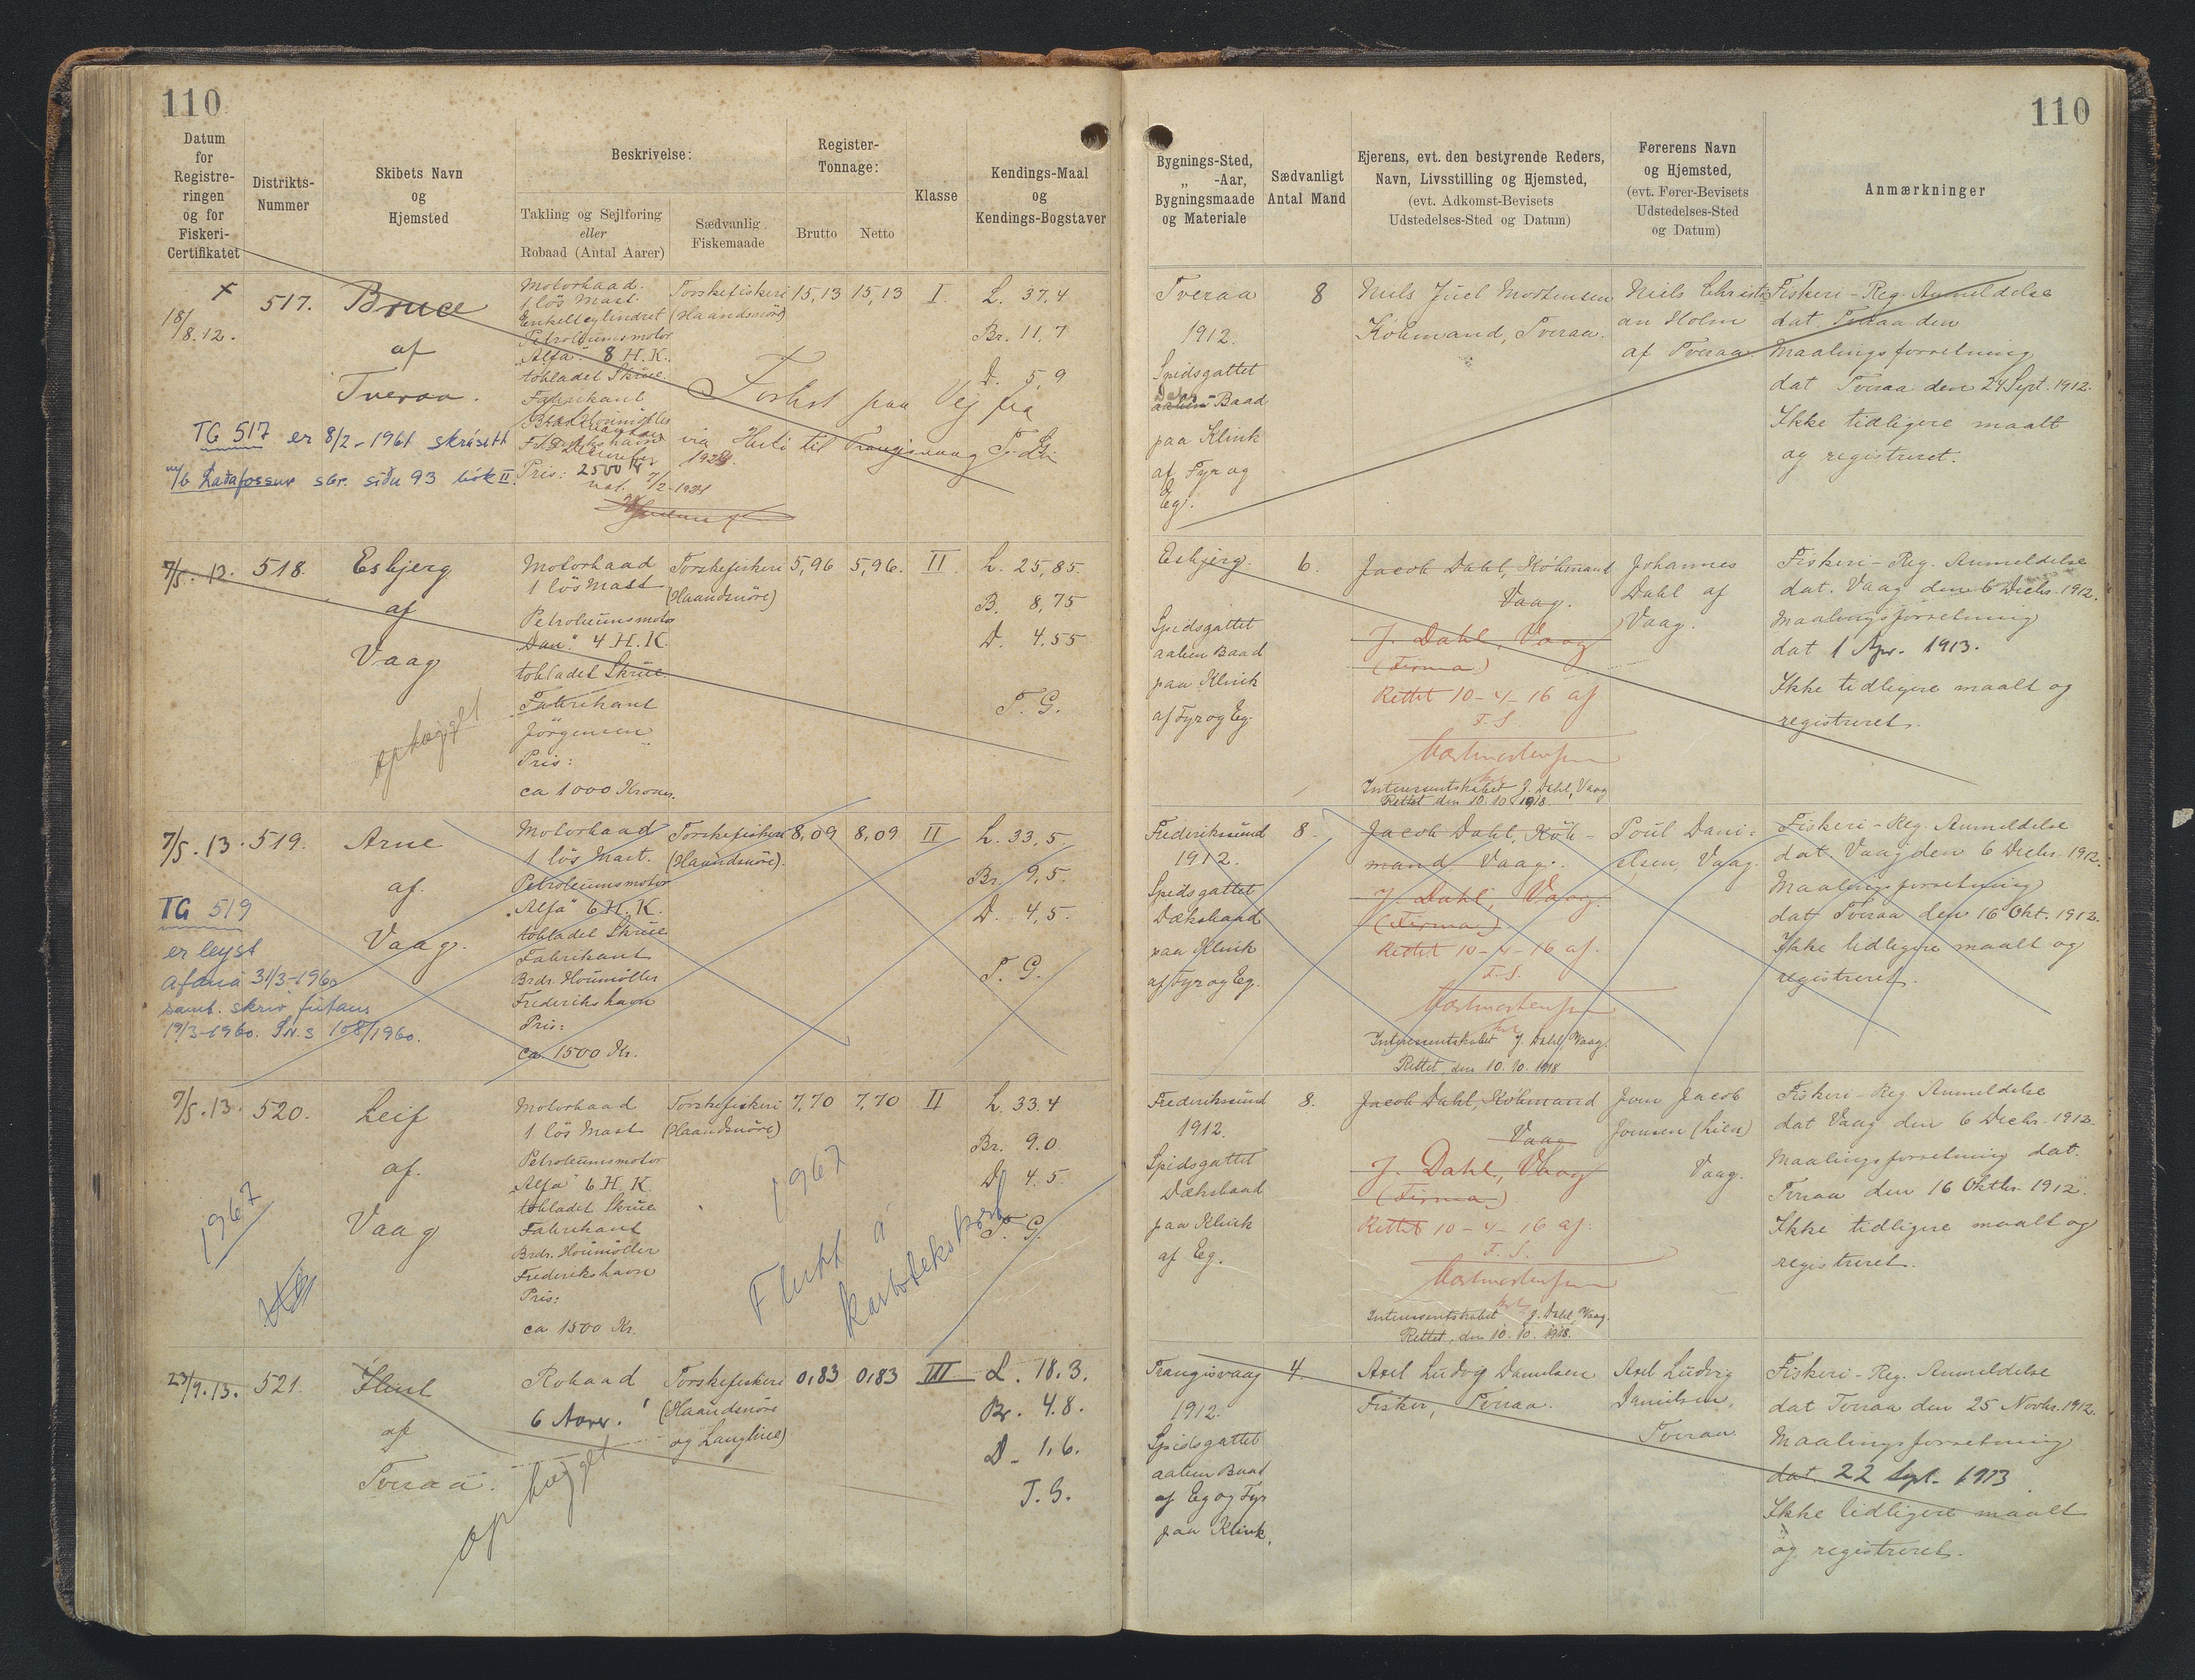 110
110
Datum
for
Registre-
ringen
og for
Fiskeri-
Certifikatet
Distrikts-
Nummer
Skibets Navn
og
Hjemsted
Beskrivelse:
Takling og Sejlføring
eller
Robaad (Antal Aarer)
Sædvanlig
Fiskemaade
Register-
Tonnage:
Brutto
Netto
Klasse
Kendings-Maal
og
Kendings-Bogstaver
Bygnings-Sted,
„ -Aar,
Bygningsmaade
og Materiale
Sædvanligt
Antal Mand
Ejerens, evt. den bestyrende Reders,
Navn, Livsstilling og Hjemsted,
(evt. Adkomst-Bevisets
Udstedelses-Sted og Datum)
Førerens Navn
og Hjemsted,
(evt. Fører-Bevisets
Udstedelses-Sted
og Datum)
Anmærkninger
18/8.12.
517.
Bruce
af
Tveraa.
TG 517 er 8/2-1961 skrásett
m/b Ladafossur sbr. síðu 93 bók II.
Motorbaad.
1 lös Mast.
Enkeltcylindret
Petroleumsmotor
„Alfa". 8 H.K.
tobladet Skrue
Fabrikant
Pris: 2500 Kr
Torskefiskeri
(Haandsnöre)
Forlist paa Vej fra
via Husti til Trangisvaag
15,13
15,13
I.
L. 37,4
Br. 11,7
D. 5,9
T. G.
Tveraa
1912.
Spidsgattet
Baad
paa Klink
af Fyr og
Eg.
8
Niels Juel Mortensen
Köbmand, Tveraa.
Niels Christi
an Holm
af Tveraa
Fiskeri-Reg. Anmeldelse
dat. Tveraa den
Maalingsforretning
dat Tveraa den 24 Sept. 1912.
Ikke tidligere maalt
og registreret.
7/5.13.
518.
Esbjerg
af
Vaag
ophugget
Motorbaad
1 lös Mast
Petroleumsmotor
„Dan" 4 H.K.
tobladet Skrue
Fabrikant
Jörgensen
Pris:
ca 1000 Kroner.
Torskefiskeri
(Haandsnöre)
5,96
5,96.
II.
L. 25,85.
B. 8,75
D. 4,55
T. G.
Esbjerg.
Spidsgattet
aaben Baad
paa Klink
af Fyr og Eg.
6.
Jacob Dahl, Köbmand
Vaag.
J. Dahl, Vaag
(Firma)
Rettet 10-4-16 af
T.S.
Interessentskabet J. Dahl, Vaag
Rettet den 10.10.1918.
Johannes
Dahl af
Vaag.
Fiskeri-Reg. Anmeldelse
dat. Vaag den 6 Decbr. 1912.
Maalingsforretning
dat 1 Apr. 1913.
Ikke tidligere maalt og
registreret.
7/5.13.
519.
Arne
af.
Vaag.
TG 519
er leyst
afana 31/3-1960
samb. skriv fútans
19/3-1960. J.N.S 108/1960.
Motorbaad
1 lös Mast.
Petroleumsmotor
„Alfa" 6 H.K.
tobladet Skrue
Fabrikant
Brdr. Houmöller
Frederikshavn
Pris:
ca 1500 Kr.
Torskefiskeri
(Haandsnöre).
8,09
8,09
II
L. 33,5.
Br. 9,5.
D. 4,5.
T. G.
Frederikssund
1912.
Spidsgattet
Dæksbaad
paa Klink
af Fyr og Eg.
8.
Jacob Dahl, Köb-
mand Vaag.
J. Dahl, Vaag.
(Firma)
Rettet 10-4-16 af.
T.S.
Interessentskabet J. Dahl, Vaag.
Rettet, den 10.10.1918
Poul Dani-
elsen, Vaag.
Fiskeri-Reg. Anmeldelse
dat. Vaag den 6 Decbr. 1912.
Maalingsforretning
dat Tveraa den 16 Okt. 1912.
Ikke tidligere maalt og
registreret.
7/5.13.
520.
Leif
af.
Vaag
1967
Motorbaad
1 lös Mast
Petroleumsmotor
„Alfa" 6 H.K.
tobladet Skrue
Fabrikant
Brdr. Houmöller
Frederikshavn
Pris:
ca 1500 Kr.
Torskefiskeri
(Haandsnöre)
1967
Flutt á
kartotekskort
7,70
7,70
II
L. 33.4
Br. 9.0
D 4.5.
T. G.
Frederikssund
1912.
Spidsgattet
Dæksbaad
paa Klink
af Eg.
8.
Jacob Dahl, Köbmand
Vaag
J. Dahl, Vaag
(Firma).
Rettet 10-4-16 af.
T.S.
Interessentskabet J. Dahl, Vaag.
Rettet, den 10.10.1918.
Joen Jacob
Joensen (Lien)
Vaag.
Fiskeri-Reg Anmeldelse
dat Vaag den 6 Decbr. 1912.
Maalingsforretning dat.
Tveraa den 16 Oktbr. 1912.
Ikke tidligere maalt og
registreret.
23/9.13.
521.
Flink
af
Tveraa.
ophugget
Robaad
6 Aarer.
Torskefiskeri
(Haandsnöre
og Langline)
0,83
0,83
III
L. 18.3.
Br. 4.8.
D. 1.6.
T.G.
Trangisvaag
1912.
Spidsgattet
aaben Baad
af Eg og Fyr
paa Klink.
4.
Axel Ludvig Danielsen
Fisker, Tveraa.
Axel Ludvig
Danielsen,
Tveraa
Fiskeri-Reg. Anmeldelse
dat Tveraa den 25 Novbr. 1912.
Maalingsforretning
dat. 22 Sept. 1913
Ikke tidligere maalt
og registreret.